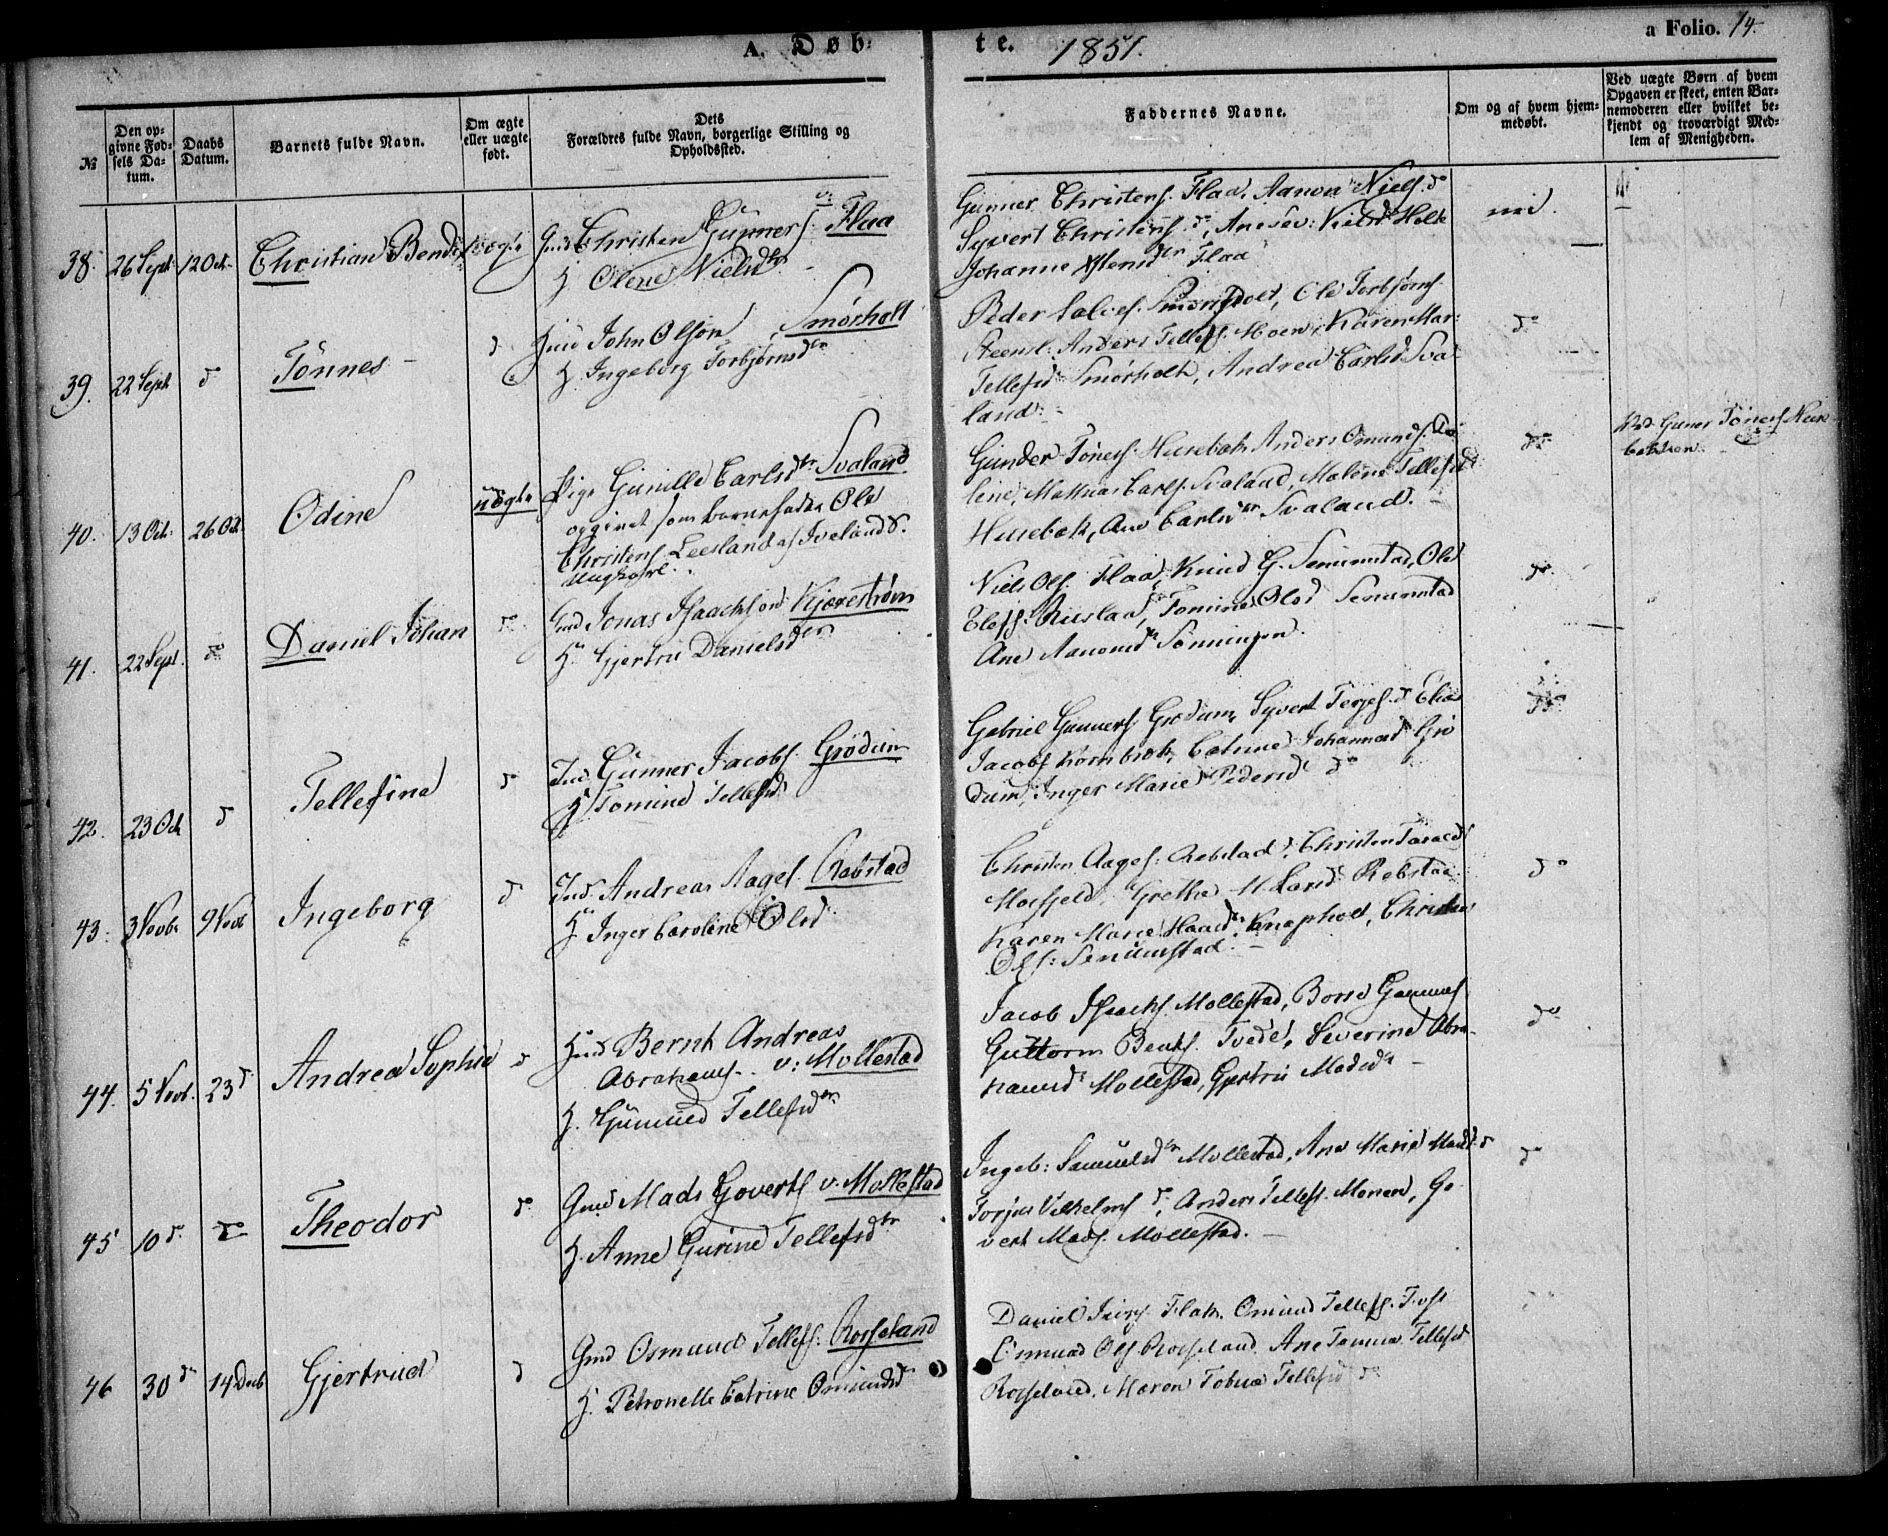 A. Døb- te. 1851. a Folio. 14.
№
Den op-
givne Fød-
sels Da-
tum.
Daabs
Datum.
Barnets fulde Navn.
Om ægte
eller uægte
født.
Dets
Forældres fulde Navn, borgerlige Stilling og
Opholdssted.
Faddernes Navne.
Om og af hvem hjem-
medøbt.
Ved uægte Børn af hvem
Opgaven er skeet, enten Bar-
nemoderen eller hvilket be-
kjendt og troværdigt Med-
lem af Menigheden.
38. 26 Sept. 12 Oct. Christian Bendix ægte
Christen Gunners. v: Flaa
H. Olene Nielsdtr
Gunner Christens. Flaa, Aanon Niels. do
Syvert Christens. do, Nielsd Holte
Johanne Flaa
nei.
39. 22 Sept. d Tønnes d
John Olson, Smørholt
H. Ingeborg Torbjørnsdtr
Peder Salves. Smørholt, Ole Torbjørns.
Steensl. Anders Tellefs. Moen, Karen Mar:
Tellefsd Smørholt, Andrea Carlsd Sva-
land.
do
40. 13 Oct. 26 Oct. Odine uægte
Pige Gunille Carlsdtr Svaland
opgivet som barnefader Ole
Christens. Leesland af Ivelands.
Ungkarl.
Gunder Tønes. Heesebak, Anders Omunds.
Mathias Carls. Svaland, Malene Tellefsd
Heesebak, Ane Carlsdtr Svaland.
do
Ved Guner Tønes Heese-
bakken.
41. 22 Sept. do Daniel Johan d
Gmd Jonas Isaackson Kjærestrøm
H. Gjertru Danielsdtr
Niels Ols. Flaa, Knud G. Senumstad, Ole
Elefs. Riisland, Tomine Olsd Senumstad
Ane Aanonsd Sønningen.
do
42. 23 Oct d Tellefine d
Ind. Gunner Jacobs. Grødum
H. Tomine Tellefsd
Gabriel Gunners. Grødum, Syvert Terjes. d Elias
Jacobs Kornbrek, Catrine Johannesd Grø-
dum, Inger Marie Pedersd do
43. 3 Novbr 9 Novb Ingeborg d
Ind. Andreas Aages. Rebstad
H. Inger Caroline Olsd.
Christen Aages: Rebstad, Christen Taraldsd
Mosfjeld, Grethe Rebstad.
Karen Marie Knapholt, Christen
Ols: Senumstad.
do
44. 5 Novb. 23 d Andrea Sophie d
Bernt Andreas
Abrahams. v: Mollestad
H. Gunuld Tellefsdtr
Jacob Isacks. Mollestad, Borre Gunners
Guttorm Bents. Tvede, Severine Abra-
hamsd Mollestad, Gjertru Madsd
do
45 10 d. d Theodor d
Gmd Mads Goverts. v: Mollestad
H. Anne Gurine Tellefsdtr
Ingeb: Samuelsdtr Mollestad, Ane Marie Madsd. d
Torjus Vilhelms d, Anders Tellefs. Monen, Go-
vert Mads. Mollestad.
d
46 30 d 14 Decb Gjertrud d
Gmd Osmund Tellefs: Rosseland
H. Petronelle Catrine Omundsd
Daniel Flak. Omund Tellefs. Foss
Omund Ols Rosseland. Ane Tomine Tellefsd
Rosseland. Maren Tobea Tellefsd do